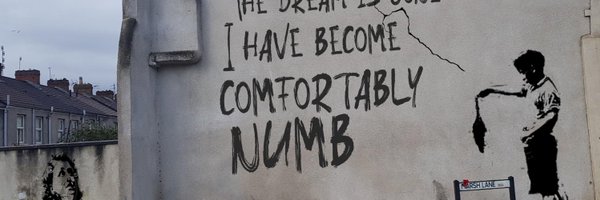 THE DREAM IS GONE
I HAVE BECOME
COMFORTABLY
NUMB
MARSH LANE